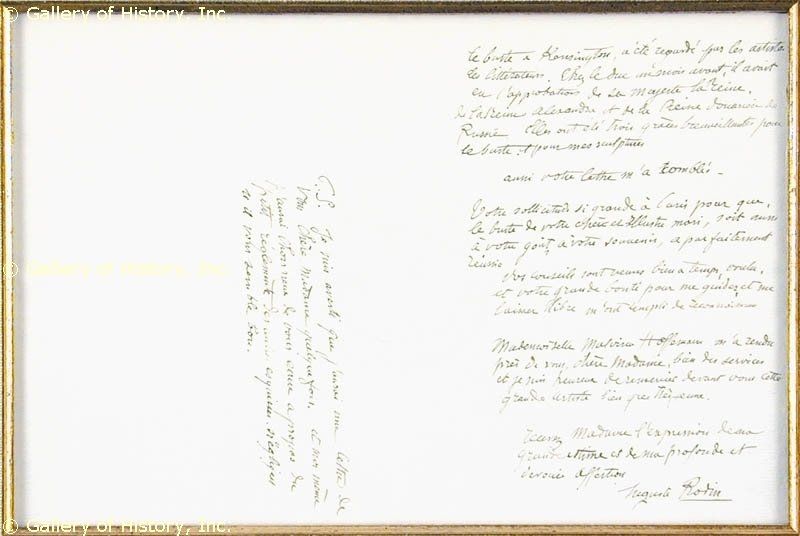 © Gallery of History, Inc.
le buste a Kensington, a été regardé par les artistes
les littérateurs. Chez le duc un mois avant, il avait
eu l'approbation de Sa majesté la Reine,
de la Reine Alexandra et de la Reine douairière de
Russie Elles ont été trois grâces bienveillantes pour
le buste, et pour mes sculptures
aussi votre lettre m'a comblé.
Votre sollicitude si grande à Paris pour que,
le buste de votre cher et illustre mari, soit
à votre goût, à votre souvenir, a parfaitement
réussie
Vos conseils sont venus bien a temps,
et votre grande bonté pour me guider, et me
laisser libre m'ont rempli de reconnaissance
Mademoiselle Malvina Hoffman m'a rendu
près de vous, chère Madame, bien des services
et je suis heureux de remercier devant vous cette
grande artiste bien que très jeune.
Madame l'expression de ma
grande estime et de ma profonde et
devouée affection
Auguste Rodin
P.S. Je suis averti que j'aurai une lettre de
Vous chère madame et moi même
j'aurai l'honneur de vous a propos du
petit
si il vous semble bon.
© Gallery of History, Inc.
© Gallery of History, Inc.